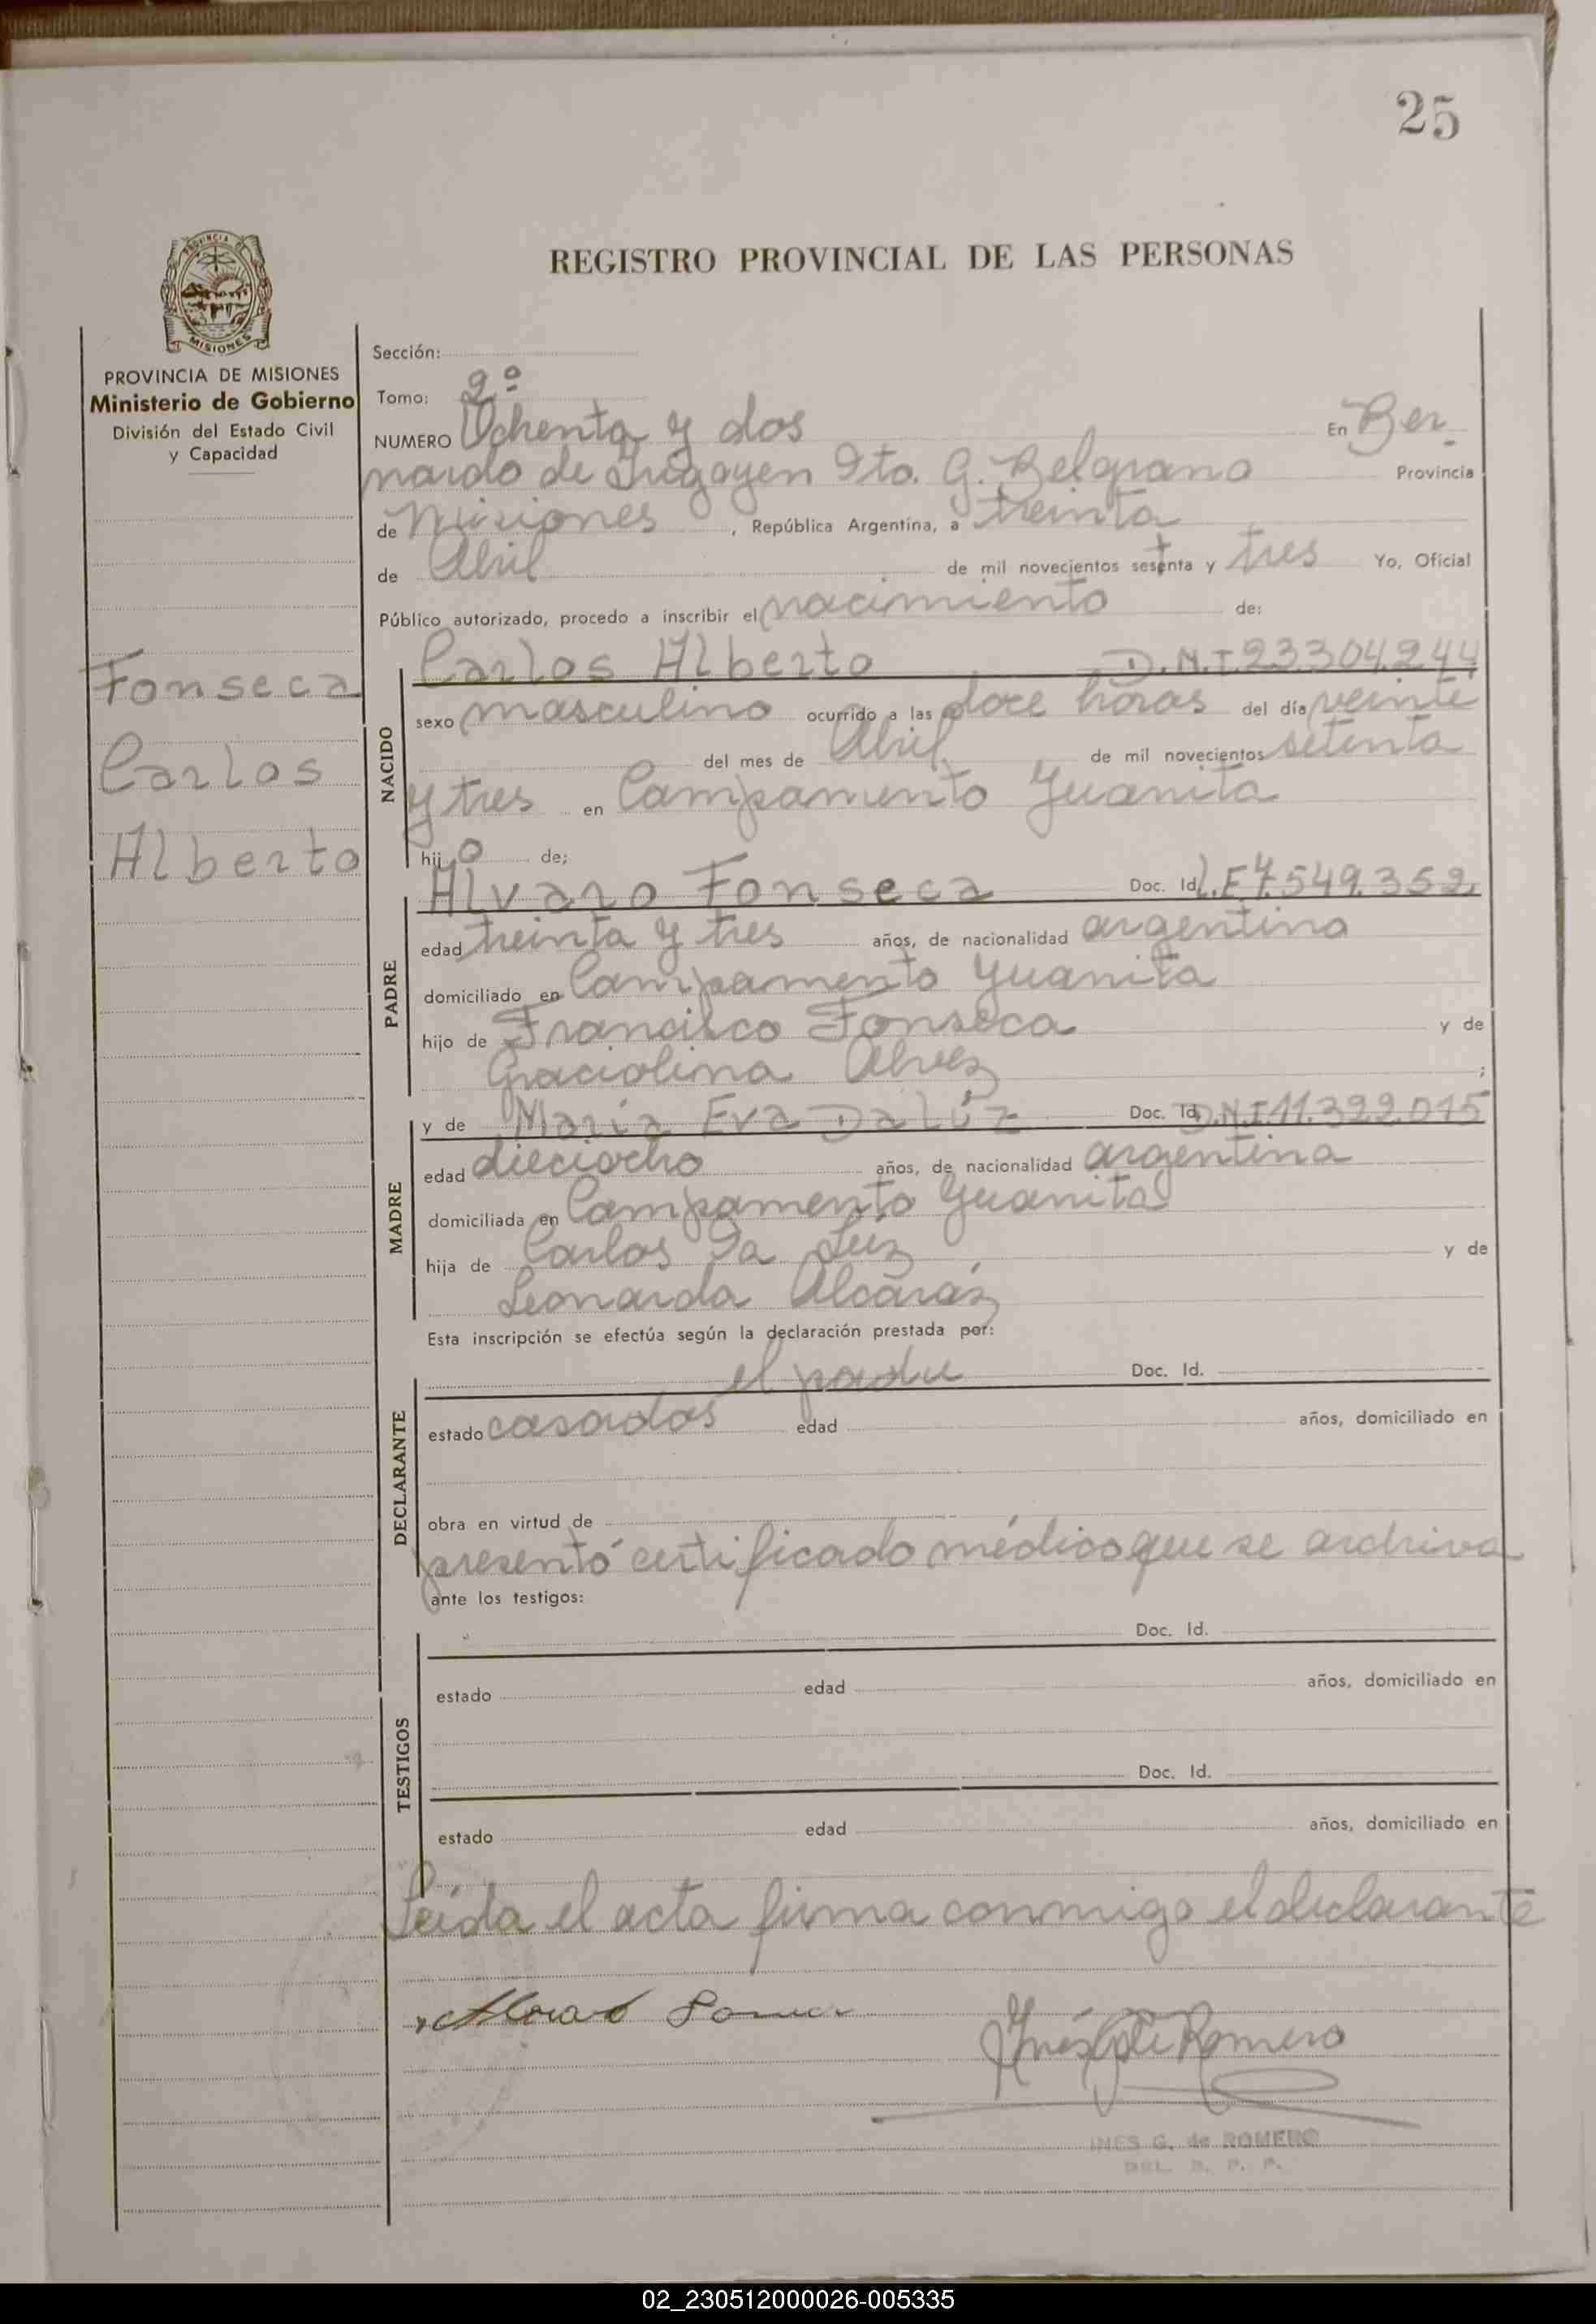 25
REGISTRO PROVINCIAL DE LAS PERSONAS
PROVINCIA DE
MISIONES
PROVINCIA DE MISIONES
Ministerio de Gobierno
División del Estado Civil
y Capacidad
Fonseca
Carlos
Alberto
Sección:
Tomo: 2º
NUMERO Ochenta y dos En Ber
nardo de Irigoyen Dto. G. Belgrano Provincia
de Misiones, República Argentina, a treinta
de Abril de mil novecientos setenta y tres Yo, Oficial
Público autorizado, procedo a inscribir el nacimiento de:
NACIDO
Carlos Alberto D.N.I. 23.304.244
sexo masculino ocurrido a las doce horas del día veinte
del mes de Abril de mil novecientos setenta
y tres en Campamento Yuanita
hijo de;
PADRE
Alvaro Fonseca Doc. Id. L.E 7.549.352
edad treinta y tres años, de nacionalidad argentino
domiciliado en Campamento Yuanita
hijo de Francisco Fonseca y de
Graciolina Alvez ;
MADRE
y de María Eva Da Lúz Doc. Id. D.N.I 11.322.015
edad dieciocho años, de nacionalidad argentina
domiciliada en Campamento Yuanita
hija de Carlos Da Lúz y de
Leonarda Alcaráz
Esta inscripción se efectúa según la declaración prestada por:
DECLARANTE
el padre Doc. Id.
estado casados edad años, domiciliado en
obra en virtud de
presentó certificado médico que se archiva
ante los testigos:
TESTIGOS
Doc. Id.
estado edad años, domiciliado en
Doc. Id.
estado edad años, domiciliado en
Leída el acta firma conmigo el declarante
Inés G de Romero
INES G. de ROMERO
DEL R. P. P.
02_230512000026-005335